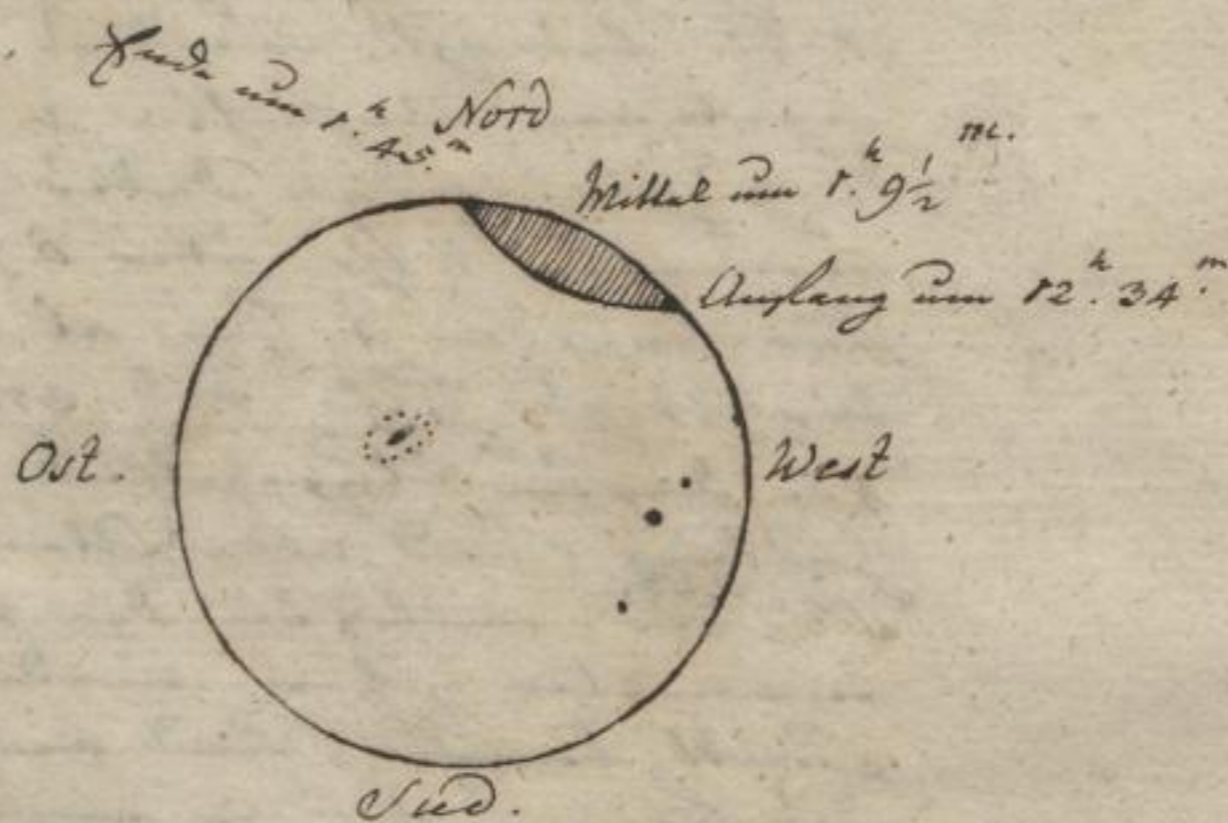 Ende um 1.h 45.m
Nord
Mittel um 1.h 9½ m.
Anfang um 12.h 34.m
Ost.
West
Süd.